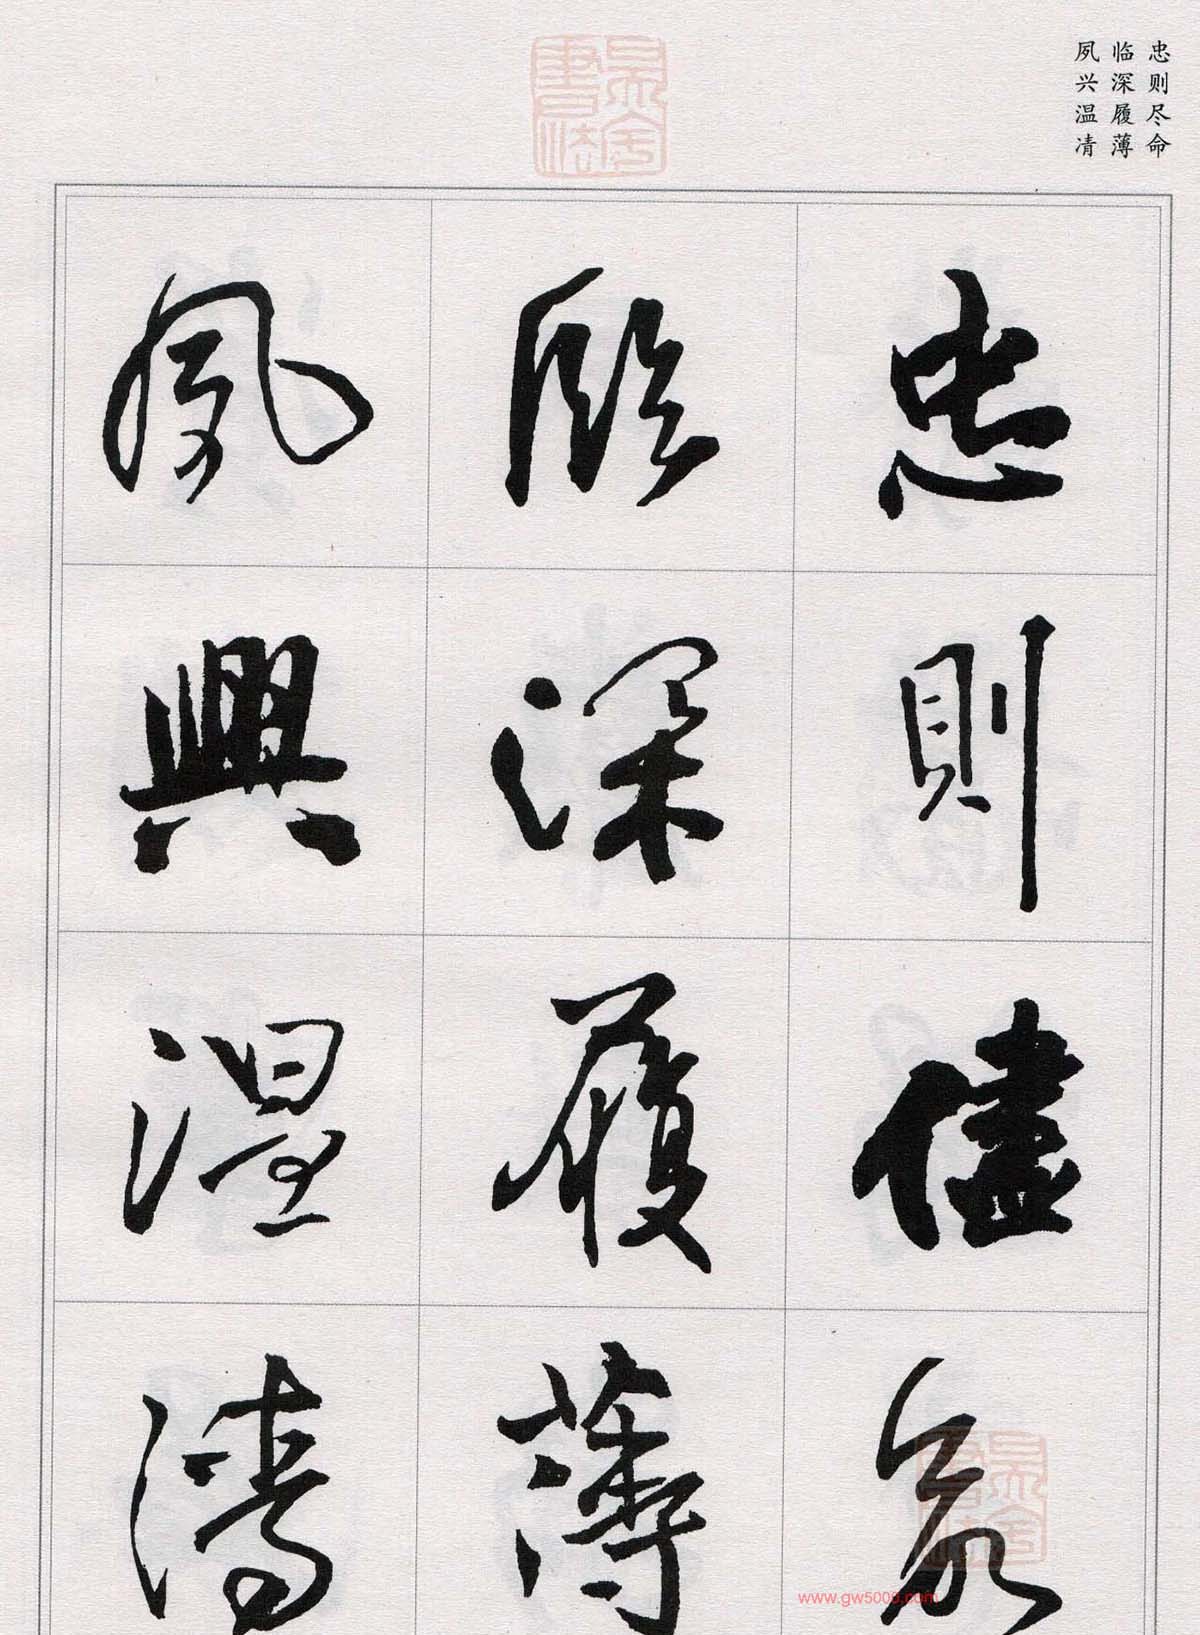 忠则尽命
临深履薄
夙兴温凊
忠則儘命
臨深履薄
夙興温清
www.gw5000.com